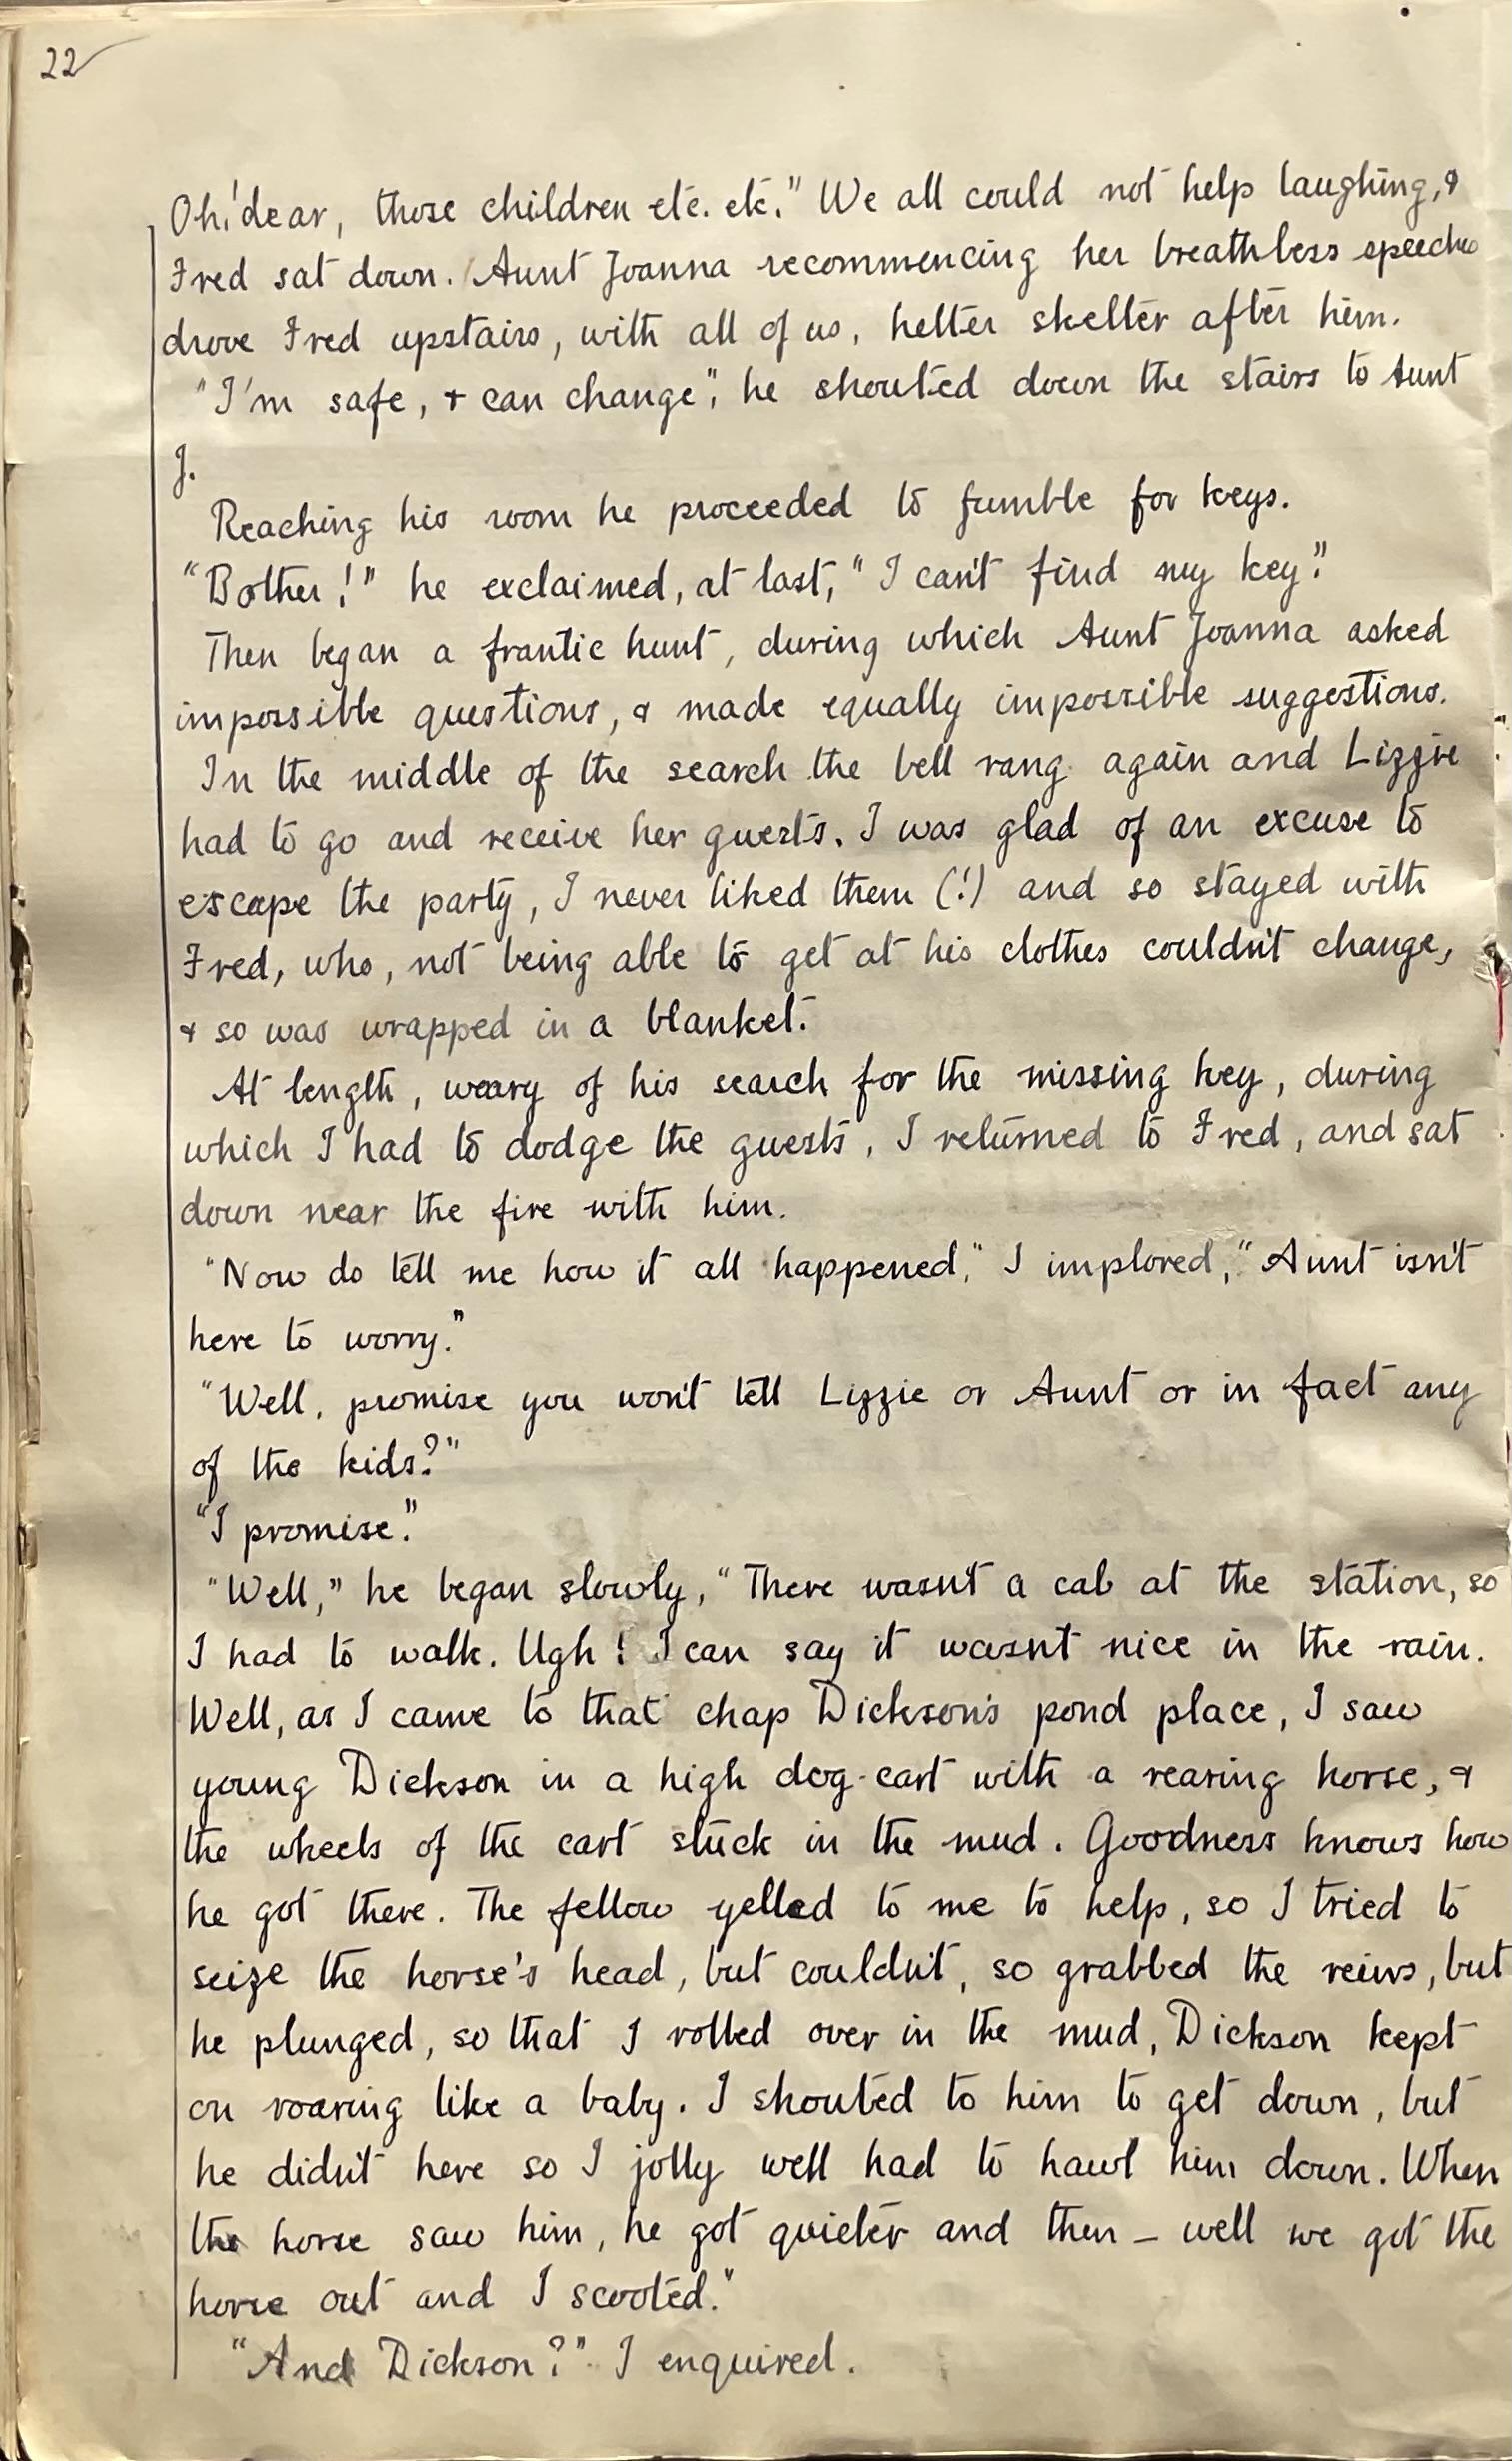 22
Oh! dear, those children etc. etc." We all could not help laughing, &
Fred sat down. Aunt Joanna recommencing her breathless speeches
drove Fred upstairs, with all of us, helter skelter after him.
"I'm safe, & can change", he shouted down the stairs to Aunt
J.
Reaching his room he proceeded to fumble for keys.
"Bother!" he exclaimed, at last, "I can't find my key".
Then began a frantic hunt, during which Aunt Joanna asked
impossible questions, & made equally impossible suggestions.
In the middle of the search the bell rang again and Lizzie
had to go and receive her guests. I was glad of an excuse to
escape the party, I never liked them (!) and so stayed with
Fred, who, not being able to get at his clothes couldn't change,
& so was wrapped in a blanket.
At length, weary of his search for the missing key, during
which I had to dodge the guests, I returned to Fred, and sat
down near the fire with him.
"Now do tell me how it all happened," I implored, "Aunt isn't
here to worry."
"Well, promise you won't tell Lizzie or Aunt or in fact any
of the kids?"
"I promise."
"Well," he began slowly, "There wasn't a cab at the station, so
I had to walk. Ugh! I can say it wasn't nice in the rain.
Well, as I came to that chap Dickson's pond place, I saw
young Dickson in a high dog-cart with a rearing horse, &
the wheels of the cart stuck in the mud. Goodness knows how
he got there. The fellow yelled to me to help, so I tried to
seize the horse's head, but couldn't, so grabbed the reins, but
he plunged, so that I rolled over in the mud, Dickson kept
on roaring like a baby. I shouted to him to get down, but
he didn't here so I jolly well had to hawl him down. When
the horse saw him, he got quieter and then – well we got the
horse out and I scooted."
"And Dickson?" I enquired.